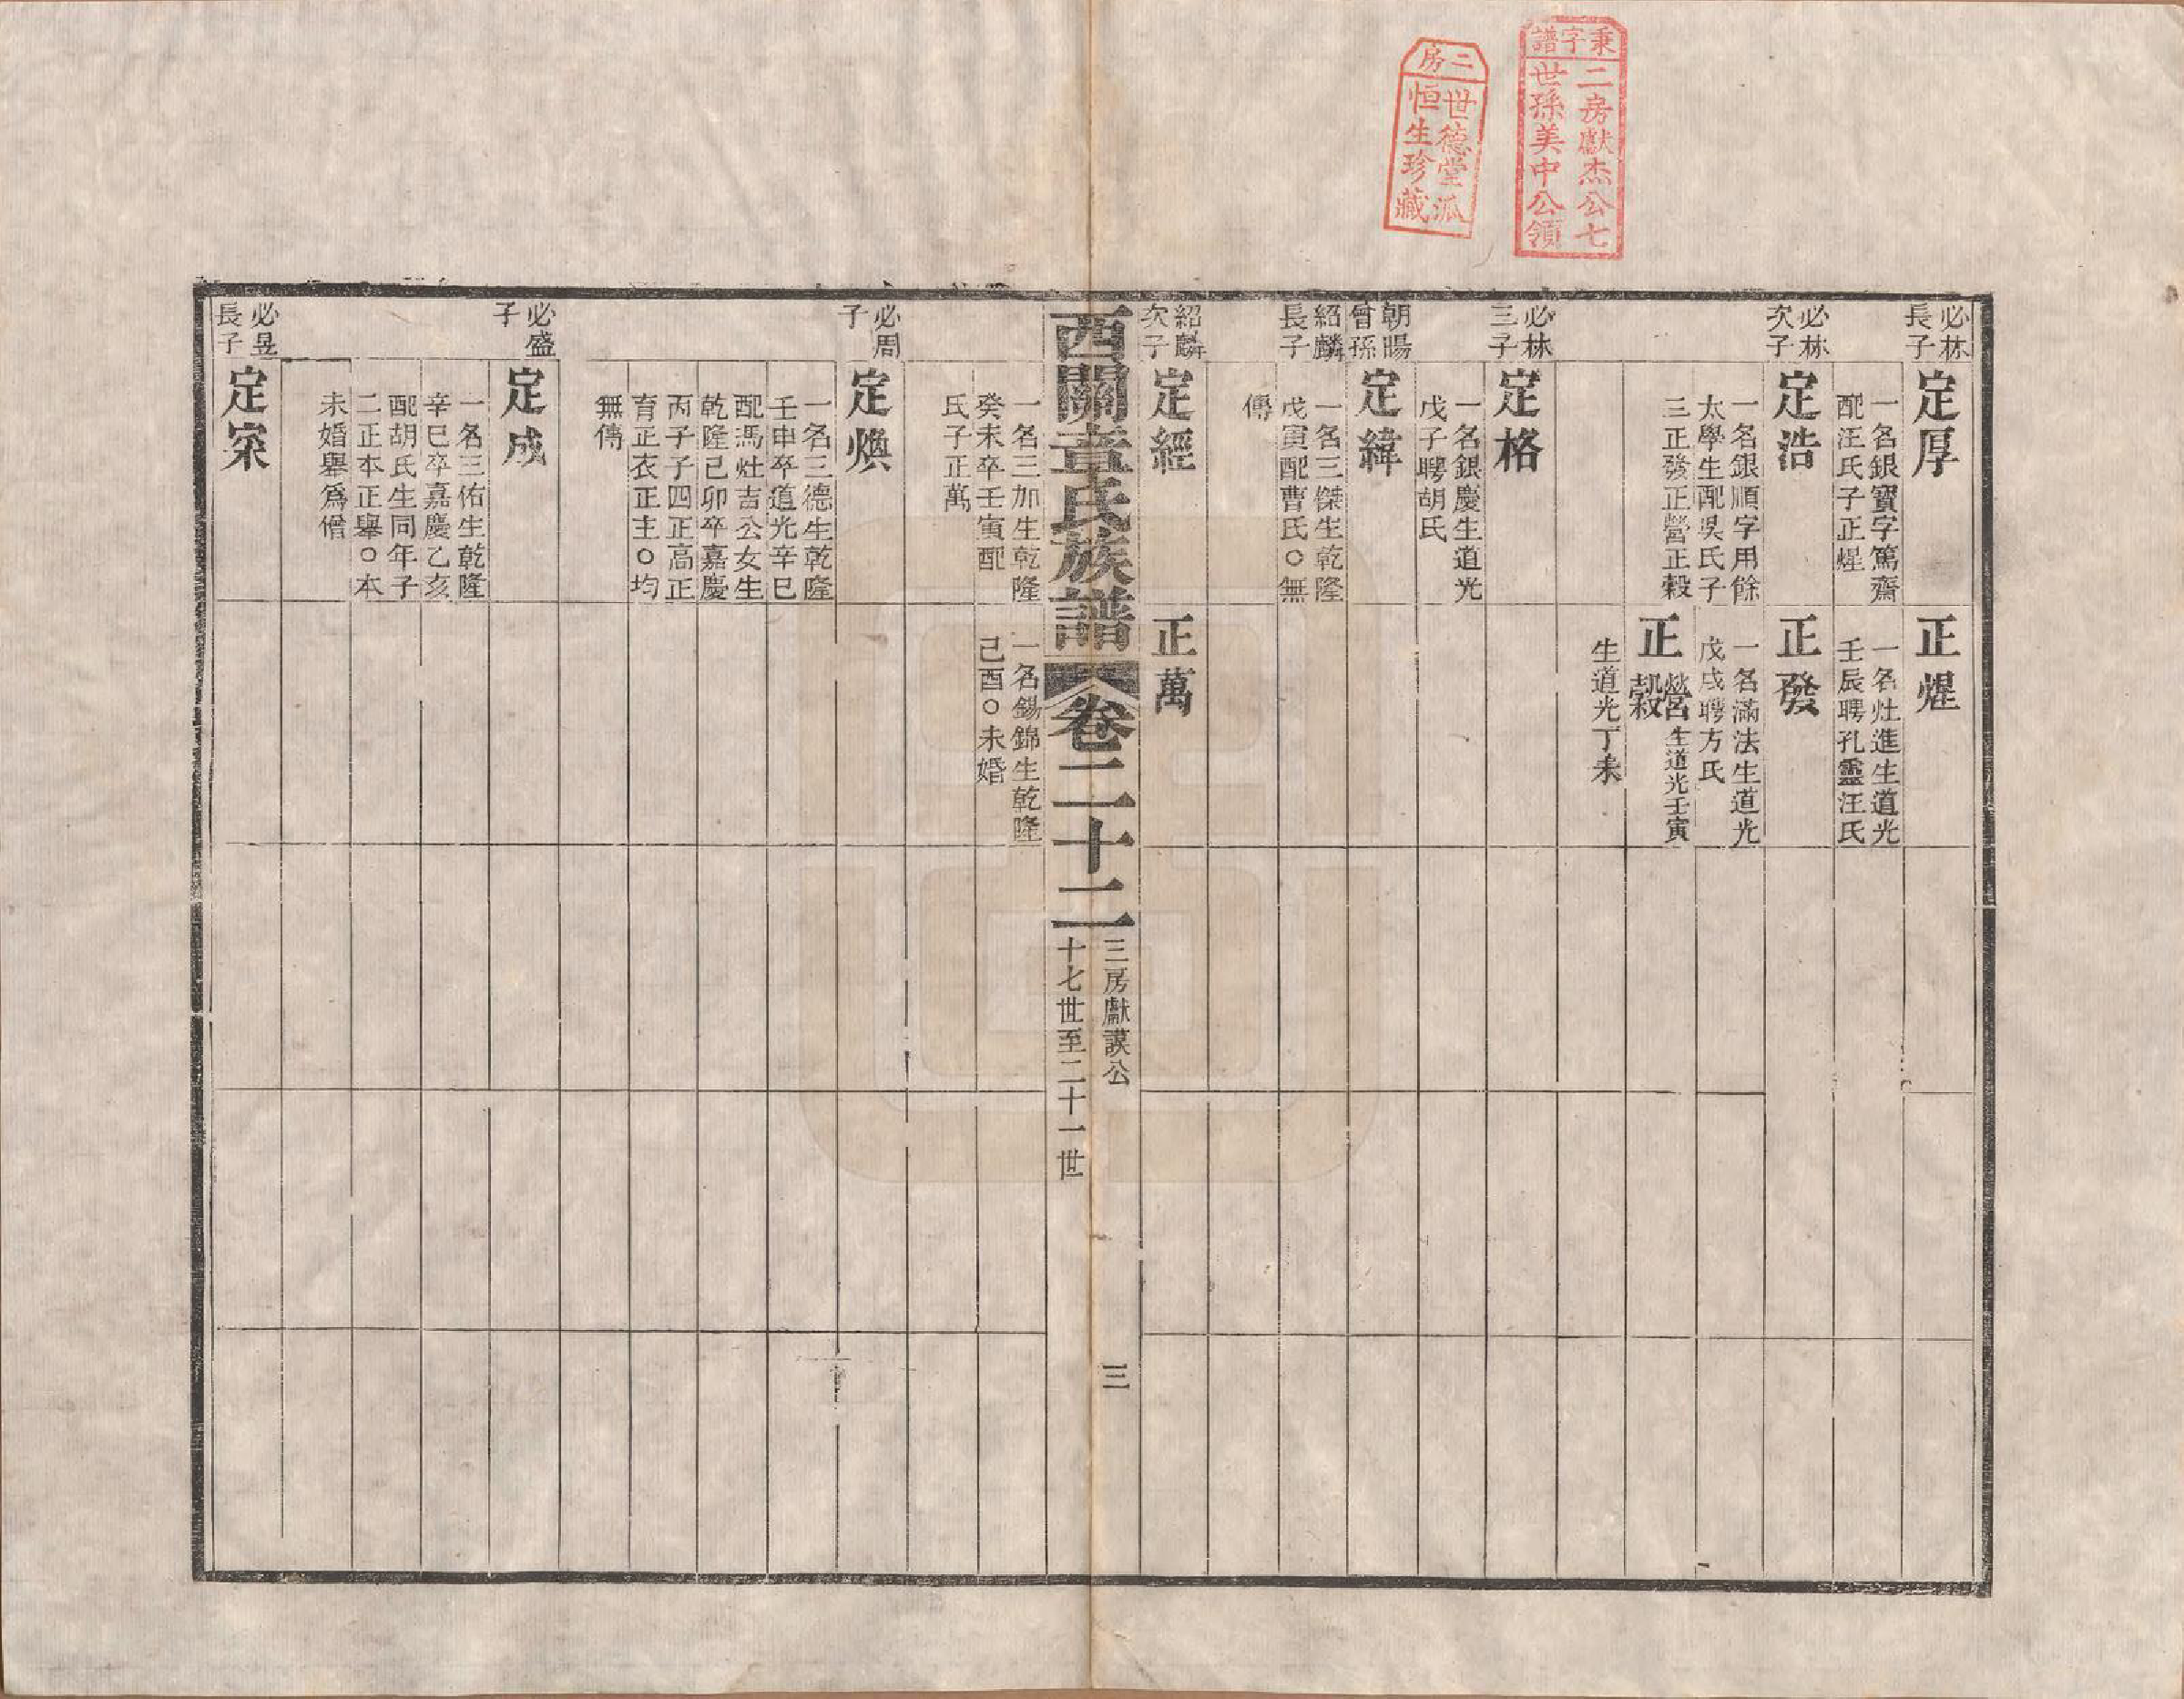 秉字譜
二房獻杰公七
世孫美中公領
二房
世德堂派
恒生珍藏
必林
長子
定厚
一名銀寶字篤齋
配汪氏子正煋
正煋
一名灶進生道光
壬辰聘孔靈汪氏
必林
次子
定浩
一名銀順字用餘
太學生配吳氏子
三正發正營正穀
正發
一名滿法生道光
戊戌聘方氏
正營生道光壬寅
正穀
生道光丁未
必林
三子
定格
一名銀慶生道光
戊子聘胡氏
朝暘
曾孫
紹麟
長子
定緯
一名三傑生乾隆
戊寅配曹氏○無
傳
紹麟
次子
定經
正萬
西關章氏族譜
卷二十二
三房獻謨公
十七世至二十一世
三
一名三加生乾隆
癸未卒壬寅配
氏子正萬
一名錫錦生乾隆
己酉○未婚
必周
子
定煥
一名三德生乾隆
壬申卒道光辛巳
配馮灶吉公女生
乾隆己卯卒嘉慶
丙子子四正高正
育正衣正主○均
無傳
必盛
子
定成
一名三佑生乾隆
辛巳卒嘉慶乙亥
配胡氏生同年子
二正本正舉○本
未婚舉爲僧
必昱
長子
定寀